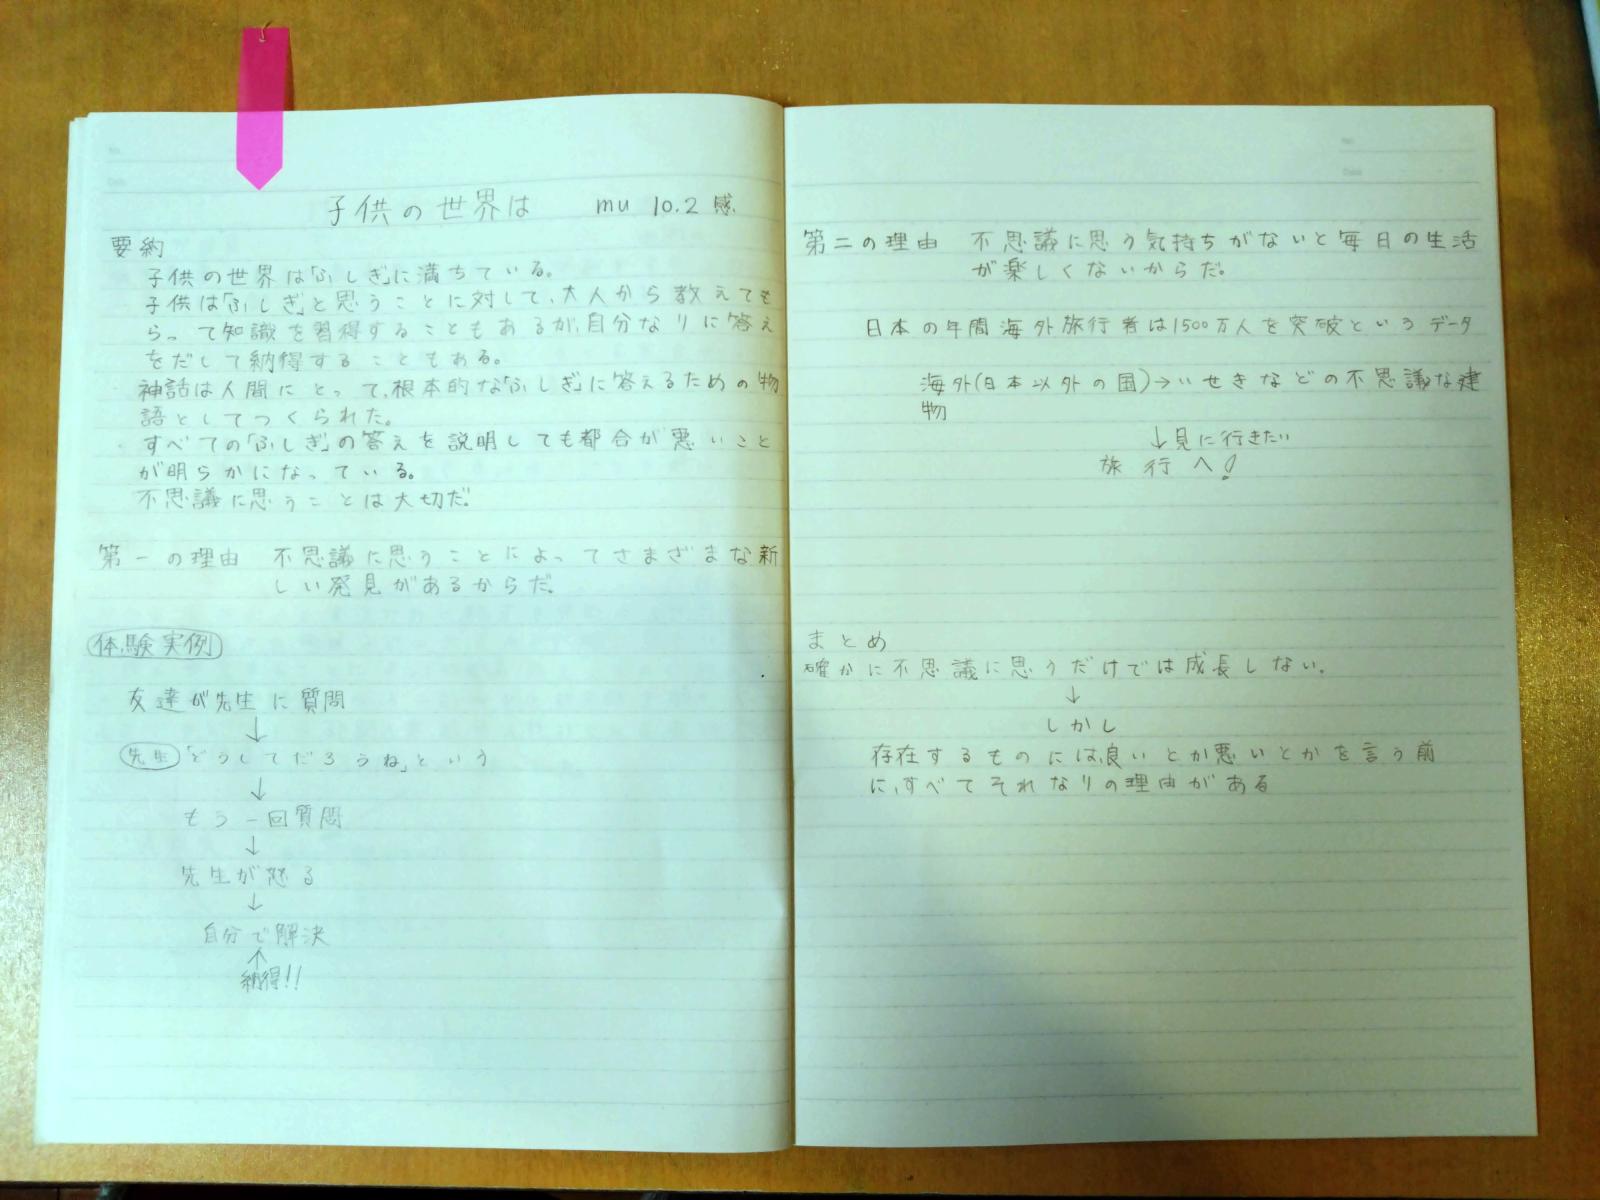 子供の世界は mu 10.2 感
要約
子供の世界は「ふしぎ」に満ちている。
子供は「ふしぎ」と思うことに対して、大人から教えても
らって知識を習得することもあるが、自分なりに答え
をだして納得することもある。
神話は人間にとって、根本的な「ふしぎ」に答えるための物
語としてつくられた。
すべての「ふしぎ」の答えを説明しても都合が悪いこと
が明らかになっている。
不思議に思うことは大切だ。
第一の理由 不思議に思うことによってさまざまな新
しい発見があるからだ。
体験実例
友達が先生に質問
↓
先生「どうしてだろうね」という
↓
もう一回質問
↓
先生が怒る
↓
自分で解決
↑
納得!!
第二の理由 不思議に思う気持ちがないと毎日の生活
が楽しくないからだ。
日本の年間海外旅行者は1500万人を突破というデータ
海外(日本以外の国)→いせきなどの不思議な建
物
↓見に行きたい
旅行へ!
まとめ
確かに不思議に思うだけでは成長しない。
↓
しかし
存在するものには、良いとか悪いとかを言う前
に、すべてそれなりの理由がある